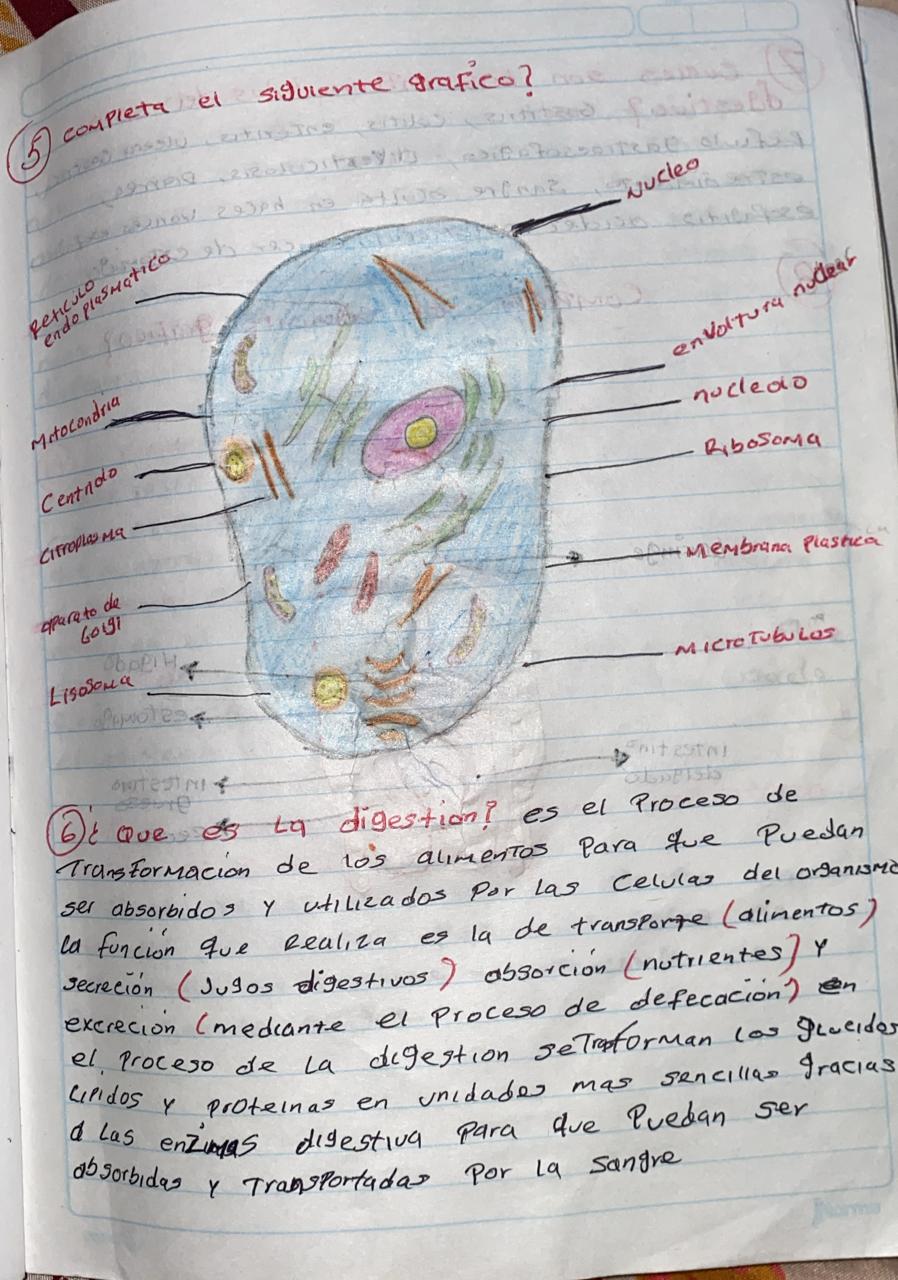 5 completa el siguiente grafico?
Nucleo
Reticulo
endoplasmatico
envoltura nuclear
Mitocondria
nucleolo
Ribosoma
Centriolo
Citroplasma
Membrana Plastica
aparato de
Golgi
Microtubulos
Lisosoma
6 ¿ Que es La digestion? es el Proceso de
Transformación de los alimentos para que Puedan
ser absorbidos y utilizados por las celulas del organismo
la función que Realiza es la de transporte (alimentos)
secreción (Jugos digestivos) absorción (nutrientes) y
excreción (mediante el Proceso de defecación) en
el Proceso de la digestion seTrasforman los glucidos
Lipidos y proteinas en unidades mas sencillas gracias
a las enzimas digestiva para que Puedan ser
absorbidas y Transportadas por la sangre
Norma